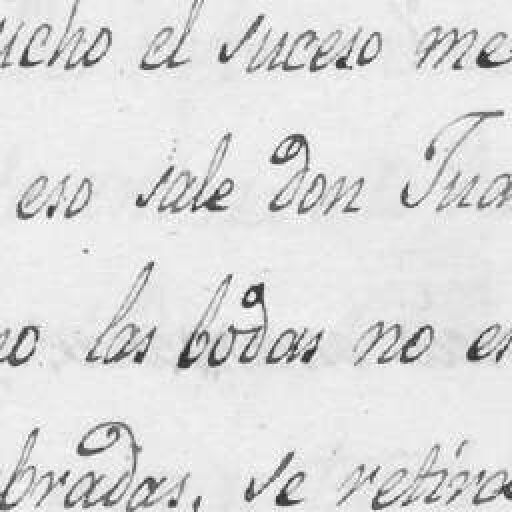 ucho el suceso me
eso sale don Jua
no las bodas no es
bradas, se retira